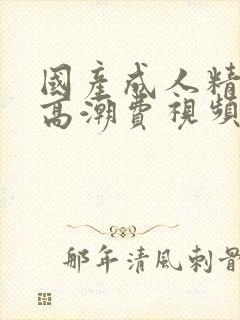 國產成人精
高潮費視頻
那年清風刺骨